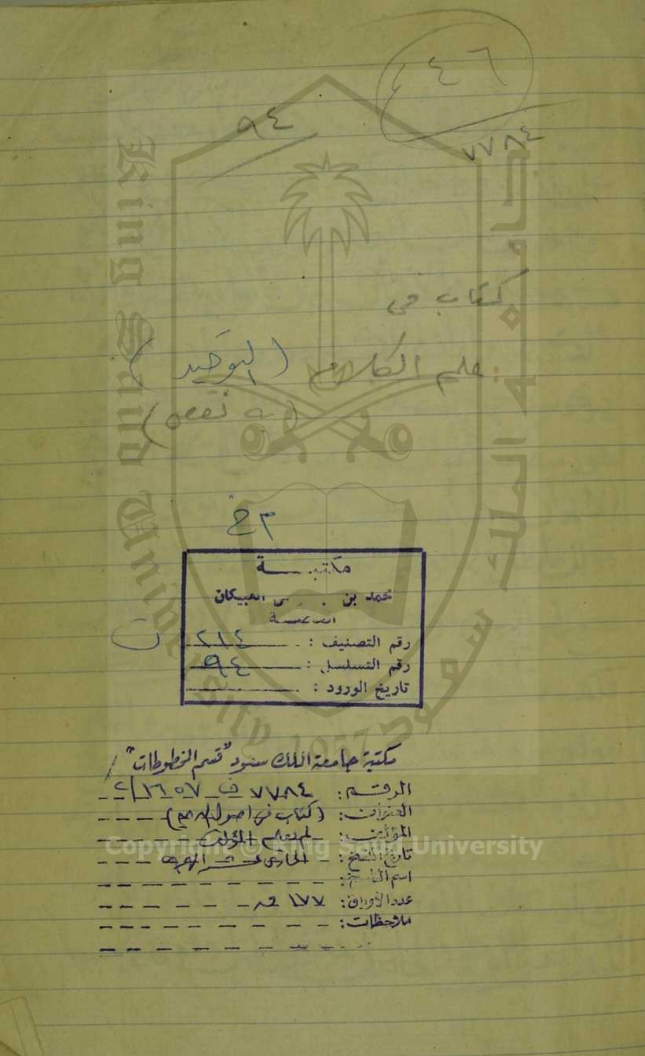 ٤٤٦
٩٤
٧٧٨٤
كتاب في
علم الكلام (التوحيد)
(به نقص)
م خ
مكتبـــة
محمد بن العبيكان
رقم التصنيف : ٢١٤ ت
رقم التسلسل : ٩٤
تاريخ الورود :
مكتبة جامعة الملك سعود "قسم المخطوطات"
الرقم: ٧٧٨٤ ف ١٦٥٧/٢
العنوان: (كتاب في اصول)
المؤلف: لم يعلم المؤلف
تاريخ النسخ: الحادي عشر الهجري
اسم الناسخ:
عدد الأوراق: ١٧٧ ق
ملاحظات:
King Saud University
جامعة الملك سعود
1957
Copyright © King Saud University